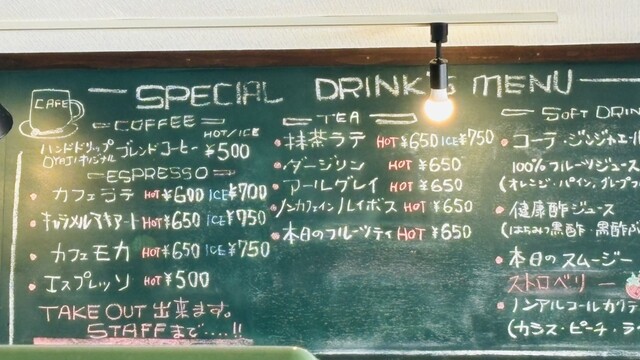 SPECIAL DRINKS MENU
CAFE
COFFEE
HOT/ICE
ハンドドリップ
オリジナル ブレンドコーヒー ¥500
ESPRESSO
カフェラテ HOT ¥600 ICE ¥700
キャラメルマキアート HOT ¥650 ICE ¥750
カフェモカ HOT ¥650 ICE ¥750
エスプレッソ HOT ¥500
TAKE OUT 出来ます。
STAFFまで.....!!
TEA
抹茶ラテ HOT ¥650 ICE ¥750
ダージリン HOT ¥650
アールグレイ HOT ¥650
ノンカフェインルイボス HOT ¥650
本日のフルーツティ HOT ¥650
SOFT DRIN
コーラ・ジンジャエール
100%フルーツジュース
(オレンジ・パイン・グレープフ
健康酢ジュース
(はちみつ黒酢・黒酢
本日のスムージー
ストロベリー
ノンアルコールカクテ
(カシス・ピーチ・ラ